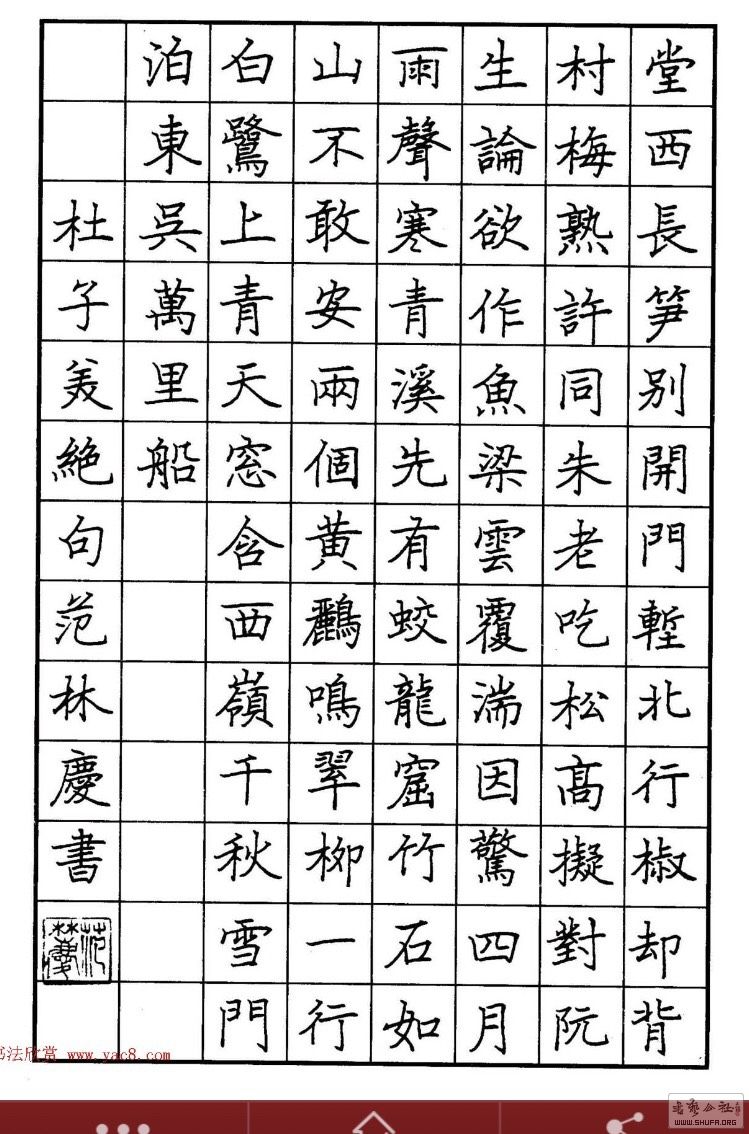 堂西長笋别開門塹北行椒却背
村梅熟許同朱老吃松髙擬對阮
生論欲作魚梁雲覆湍因驚四月
雨聲寒青溪先有蛟龍窟竹石如
山不敢安兩個黄鸝鳴翠柳一行
白鷺上青天窓含西嶺千秋雪門
泊東吳萬里船
杜子美絶句范林慶書
范林慶
书法欣赏 www.yac8.com
书艺公社
WWW.SHUFA.ORG